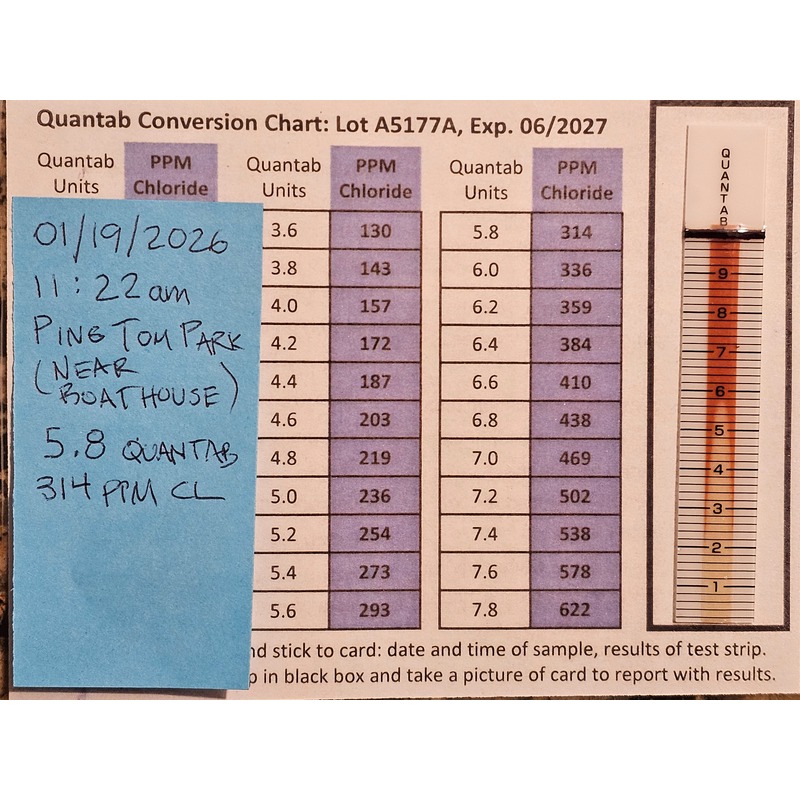 Quantab Conversion Chart: Lot A5177A, Exp. 06/2027
Quantab Units PPM Chloride Quantab Units PPM Chloride Quantab Units PPM Chloride
3.6 130 5.8 314
3.8 143 6.0 336
4.0 157 6.2 359
4.2 172 6.4 384
4.4 187 6.6 410
4.6 203 6.8 438
4.8 219 7.0 469
5.0 236 7.2 502
5.2 254 7.4 538
5.4 273 7.6 578
5.6 293 7.8 622
stick to card: date and time of sample, results of test strip.
in black box and take a picture of card to report with results.
01/19/2026
11:22am
PING TOM PARK
(NEAR
BOATHOUSE)
5.8 QUANTAB
314 PPM CL
QUANTAB
9
8
7
6
5
4
3
2
1